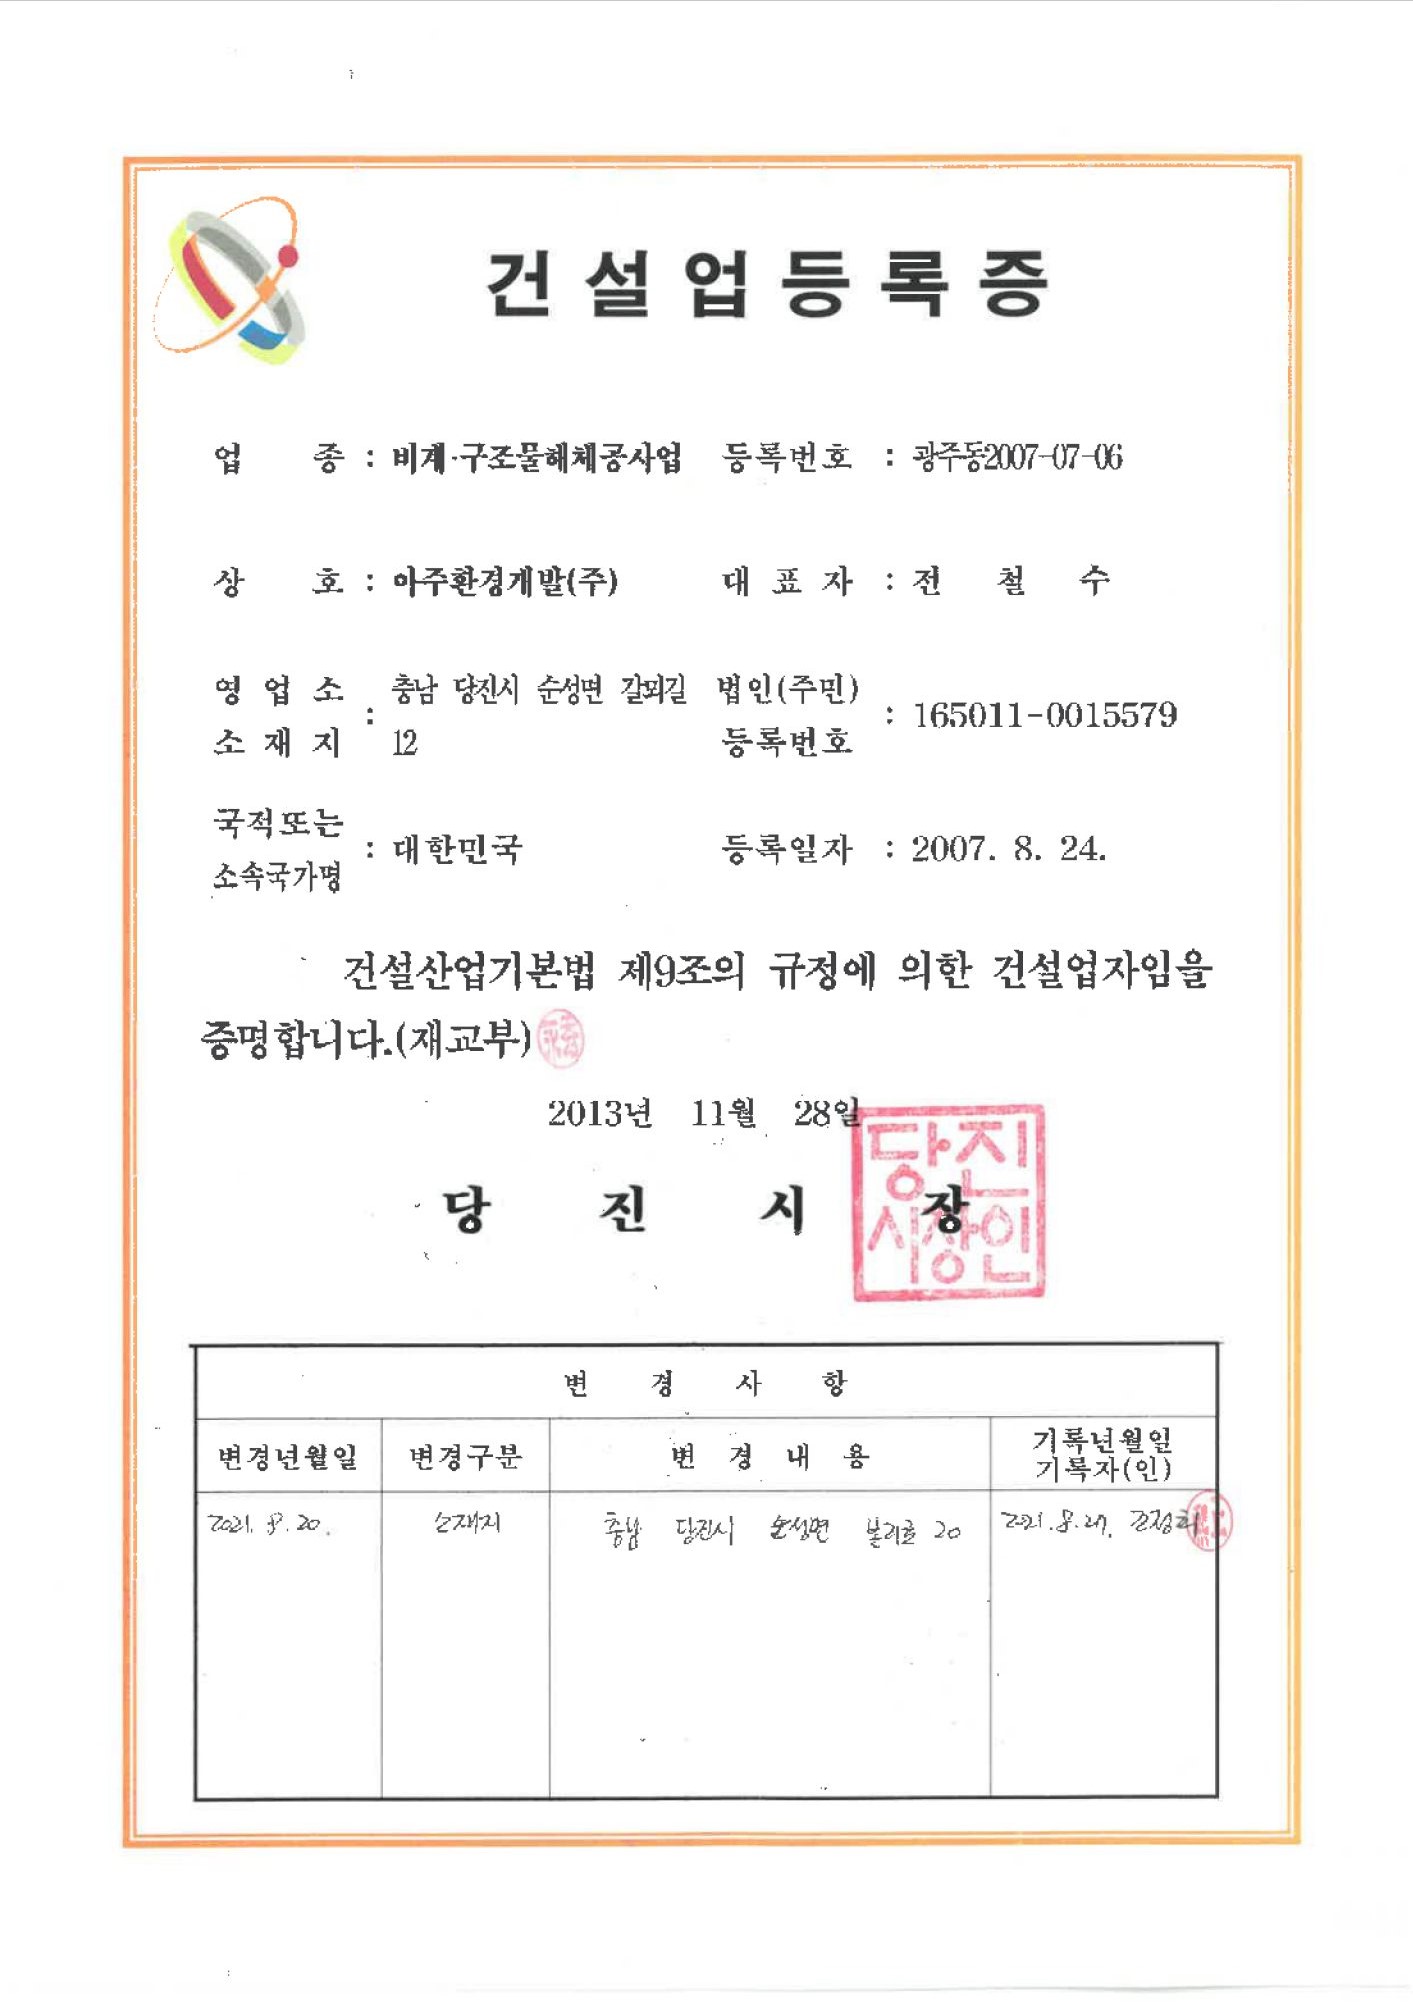 건설업등록증
업 종 : 비계·구조물해체공사업 등록번호 : 광주동2007-07-06
상 호 : 아주환경개발(주) 대 표 자 : 전 철 수
영 업 소 소 재 지 : 충남 당진시 순성면 갈뫼길 12 법인(주민) 등록번호 : 165011-0015579
국적또는 소속국가명 : 대한민국 등록일자 : 2007. 8. 24.
건설산업기본법 제9조의 규정에 의한 건설업자임을
증명합니다.(재교부)
2013년 11월 28일
당 진 시 장
당진
시장인
변 경 사 항
변경년월일 변경구분 변 경 내 용 기록년월일 기록자(인)
2021. 8. 20. 소재지 충남 당진시 순성면 봉리로 20 2021. 8. 27.